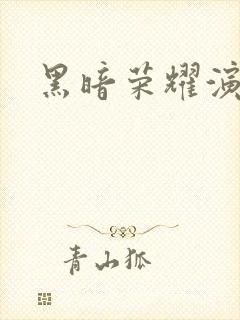 黑暗荣耀演
青山狐